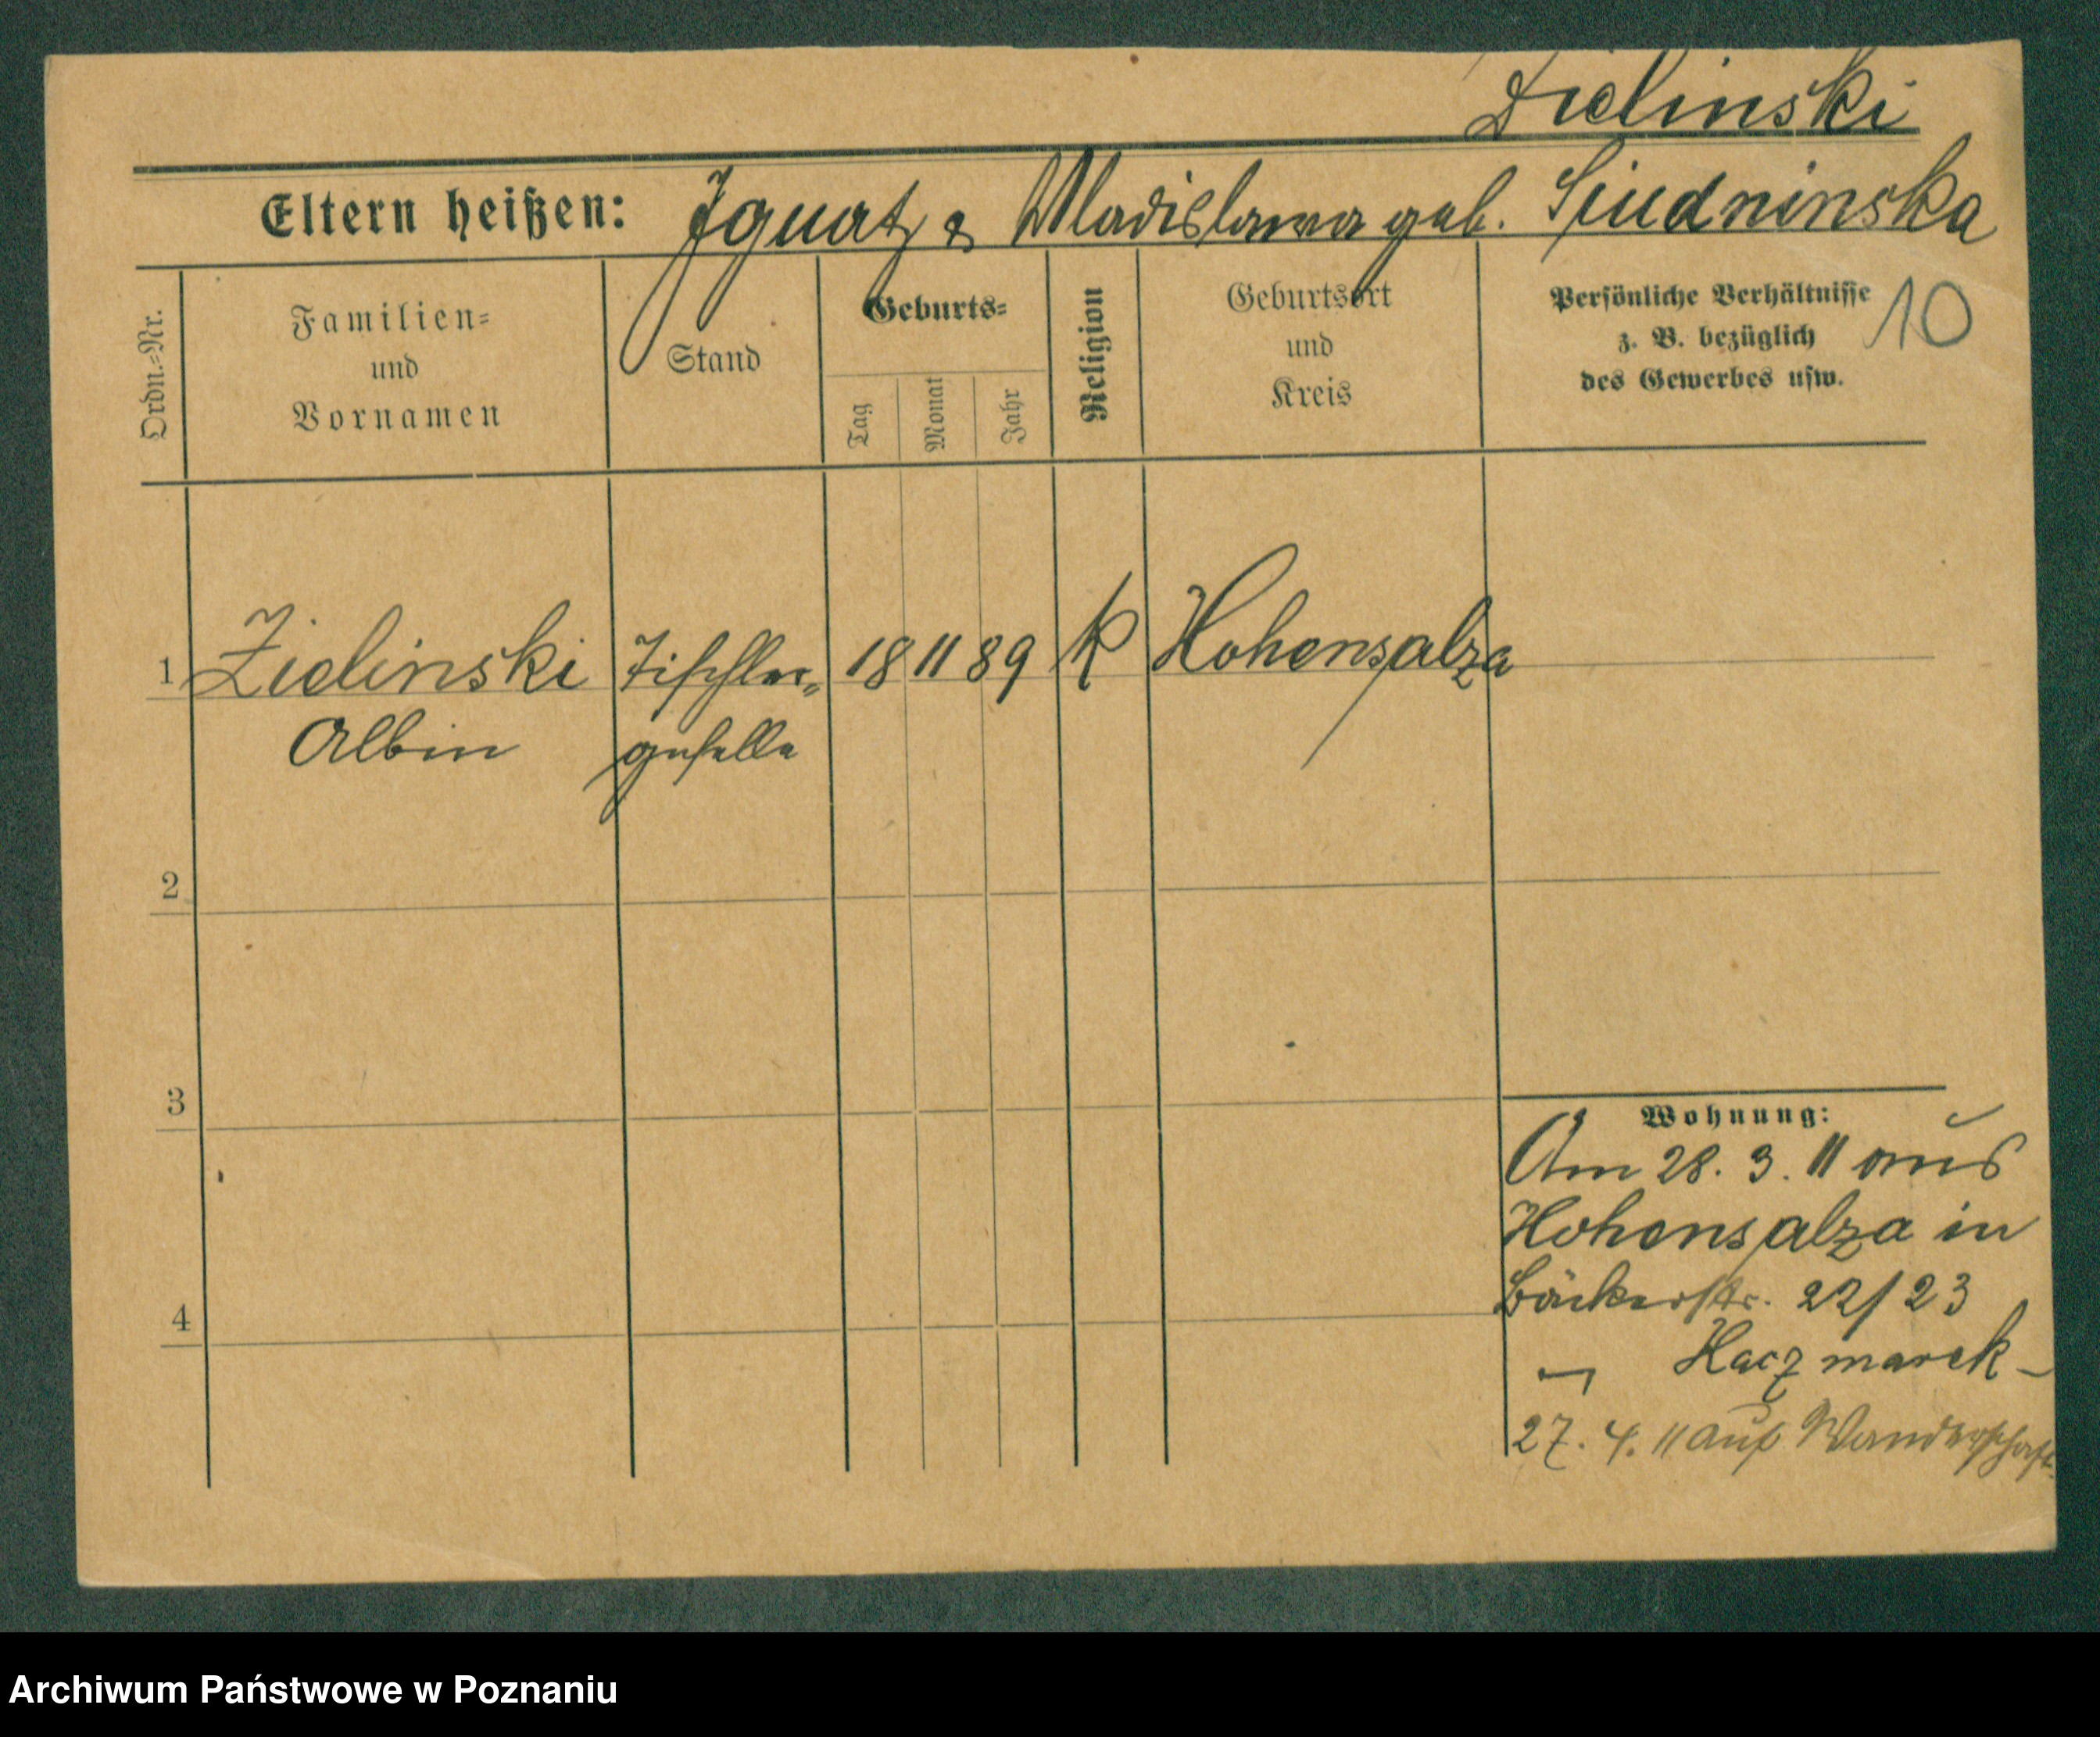 Zielinski
Eltern heißen: Ignatz & Wladislawa geb. Siudninska
Ordn.=Nr.
Familien=
und
Vornamen
Stand
Geburts=
Tag
Monat
Jahr
Religion
Geburtsort
und
Kreis
Persönliche Verhältnisse
z. B. bezüglich
des Gewerbes usw.
10
1 Zielinski Tischler= 18 11 89 K Hohensalza
Albin geselle
2
3
4
Wohnung:
Am 28. 3. 11 aus
Hohensalza in
Bäckerstr. 22/23
Kaczmarek
27. 4. 11 auf Wanderschaft
Archiwum Państwowe w Poznaniu